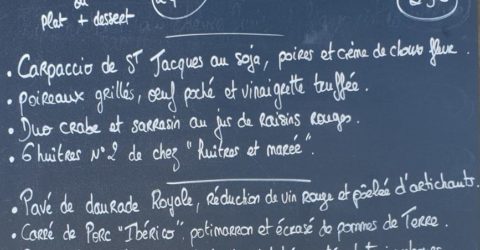 ou
plat + dessert
• Carpaccio de St Jacques au soja, poires et crème de chou fleur.
• Poireaux grillés, oeuf poché et vinaigrette truffée.
• Duo crabe et sarrasin au jus de raisins rouges.
• 6 huitres N°2 de chez "Huitres et marée".
• Pavé de daurade Royale, Réduction de vin rouge et poêlée d'artichauts.
• Carré de Porc "Ibérico", potimarron et écrasé de pommes de Terre.